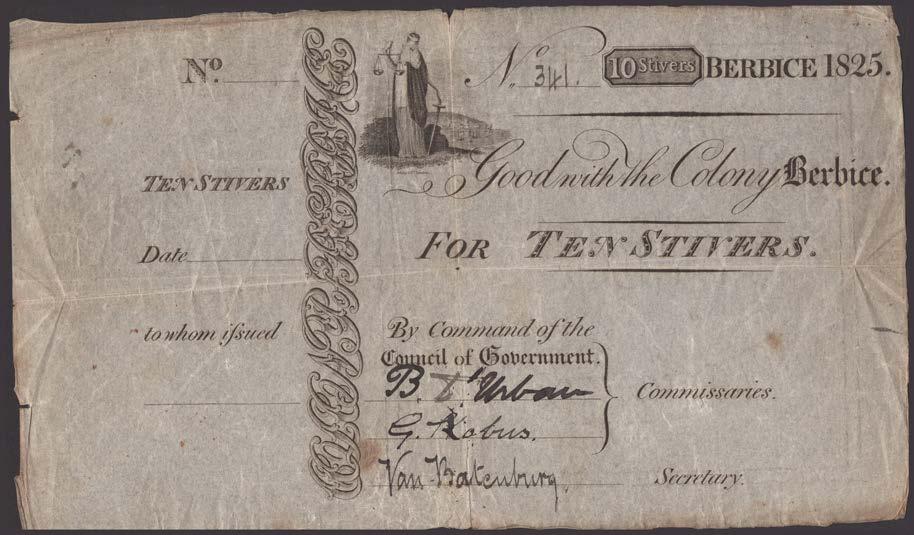 No.
TEN STIVERS
Date
to whom iſsued
No. 341. 10 Stivers BERBICE 1825.
Good with the Colony Berbice.
FOR TEN STIVERS.
By Command of the
Council of Government.
B. D'Urban
G. Kobus. Commissaries.
Van Batenburg. Secretary.